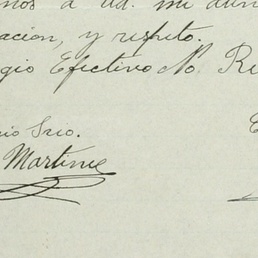 a Ud. mi
ación, y respeto.
gio Efectivo No. Re
rio Srio.
Martine